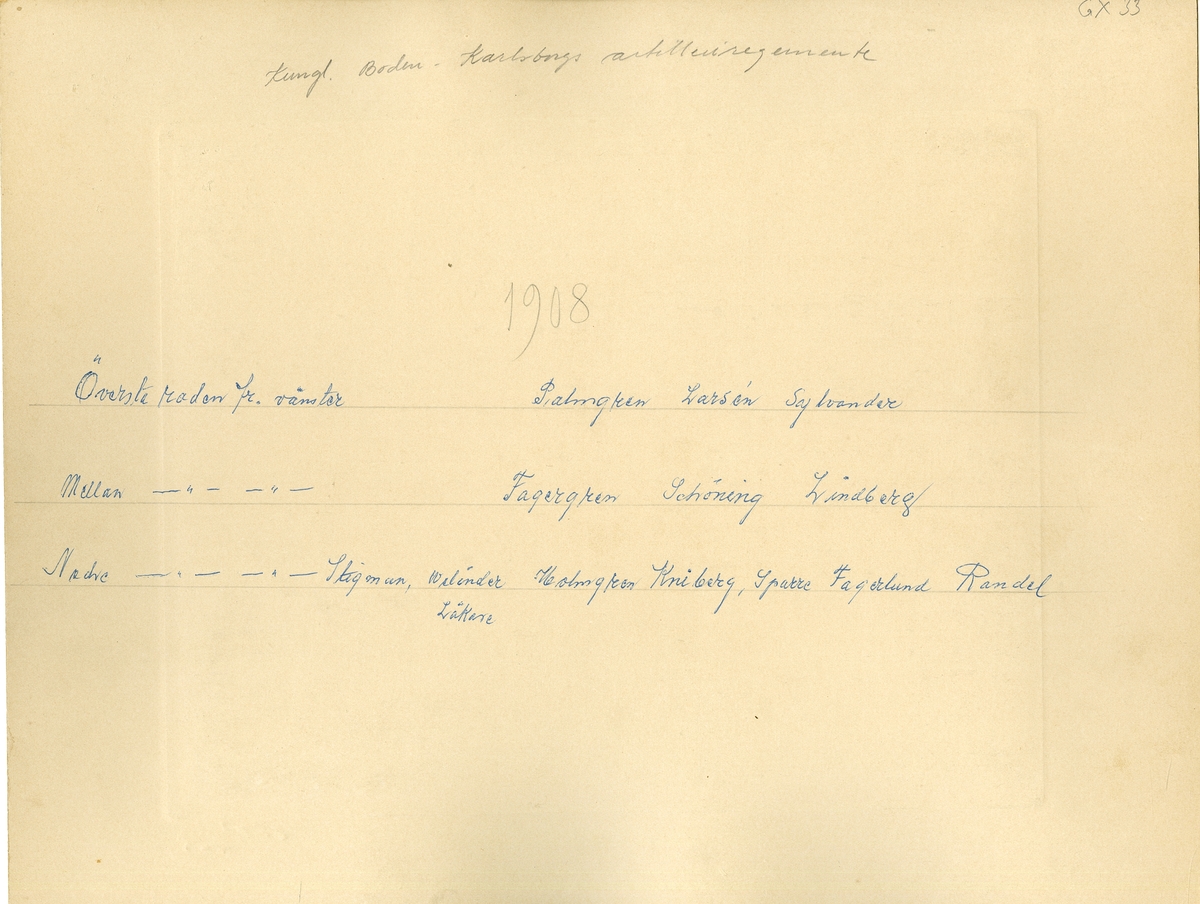 GX 33
Kungl. Boden-Karlsborgs artilleriregemente
1908
Översta raden fr. vänster Palmgren Larsén Sylvander
Mellan —"— —"— Fagergren Schöning Lindberg
Nedre —"— —"— Stigman, Welinder Holmgren Kniberg, Sparre Fagerlund Randel
Läkare